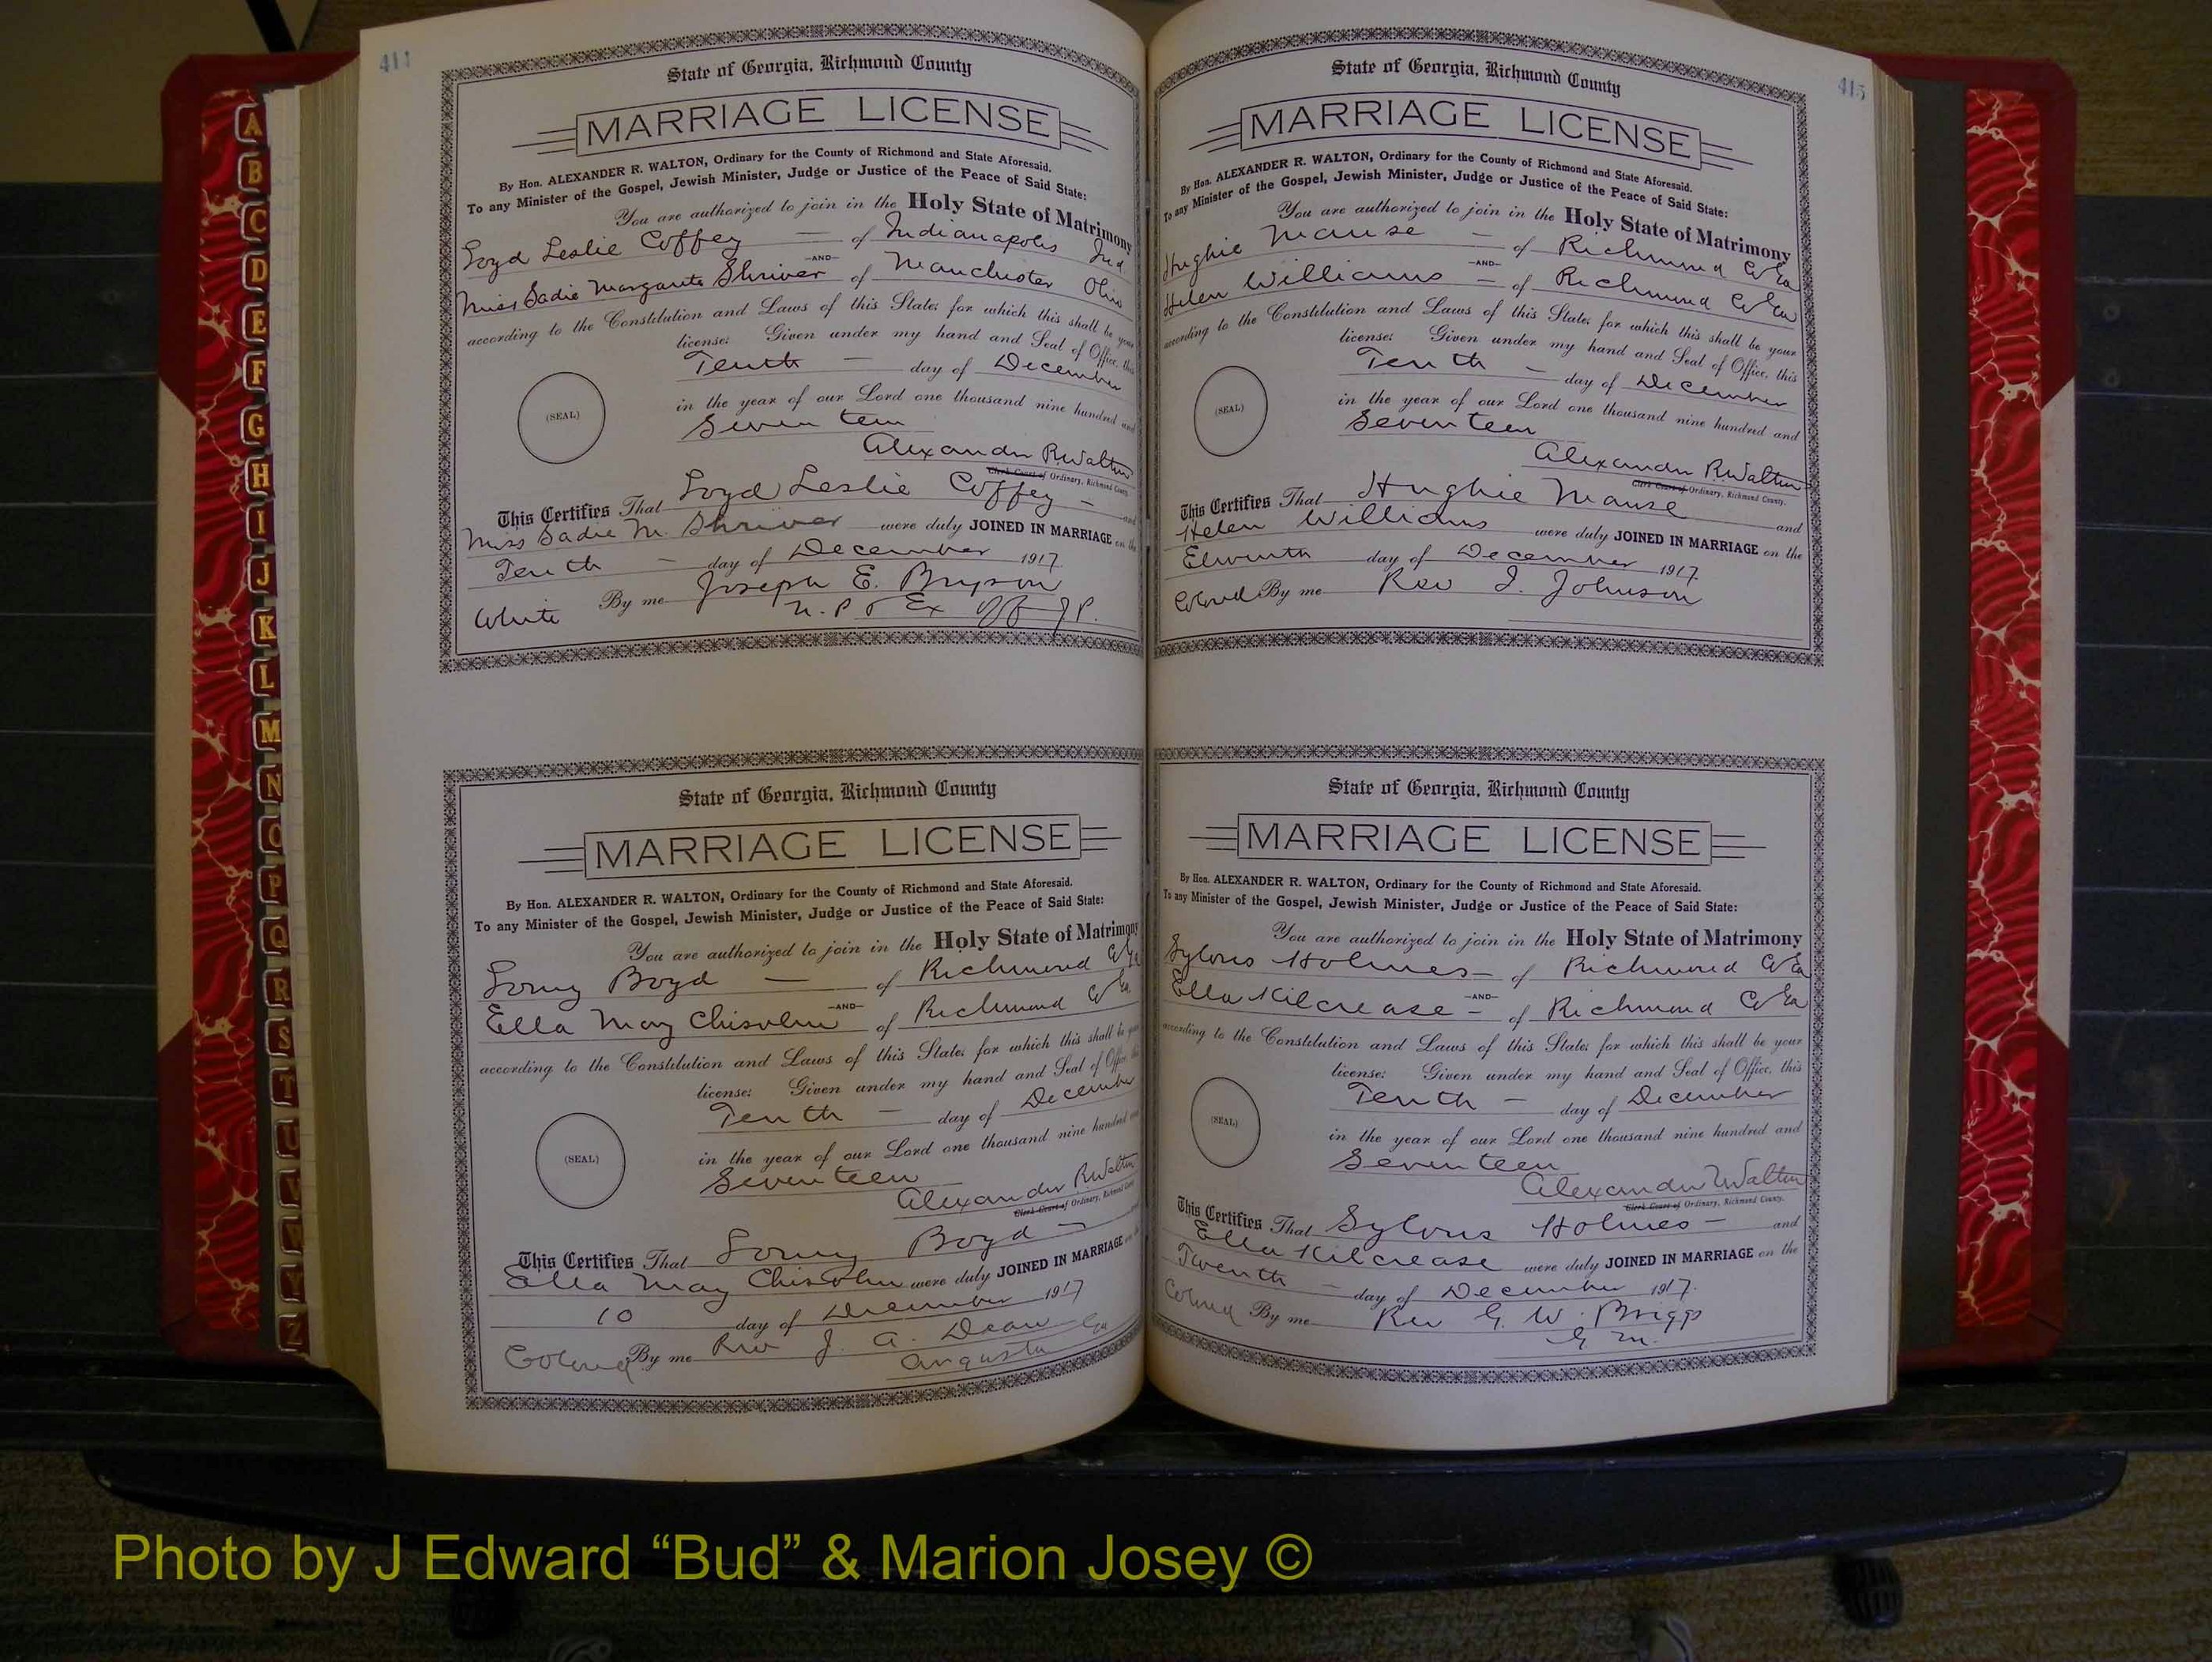 411
State of Georgia, Richmond County
MARRIAGE LICENSE
By Hon. ALEXANDER R. WALTON, Ordinary for the County of Richmond and State Aforesaid.
To any Minister of the Gospel, Jewish Minister, Judge or Justice of the Peace of Said State:
You are authorized to join in the Holy State of Matrimony
Loyd Leslie Coffey — of Indianapolis Ind
—AND—
Miss Sadie Margarite Shriver of Manchester Ohio
according to the Constitution and Laws of this State; for which this shall be your
license: Given under my hand and Seal of Office, this
Tenth — day of December
(SEAL)
in the year of our Lord one thousand nine hundred and
Seventeen
Alexander R Walton
Clerk Court of Ordinary, Richmond County.
This Certifies That Loyd Leslie Coffey — and
Miss Sadie M. Shriver were duly JOINED IN MARRIAGE on the
Tenth — day of December 1917.
White By me Joseph E. Bryson
N. P & Ex Off J P.
State of Georgia, Richmond County
MARRIAGE LICENSE
By Hon. ALEXANDER R. WALTON, Ordinary for the County of Richmond and State Aforesaid.
To any Minister of the Gospel, Jewish Minister, Judge or Justice of the Peace of Said State:
You are authorized to join in the Holy State of Matrimony
Boyd — of Richmond Co Ga
—AND—
Ella May Chisolm of Richmond Co Ga
according to the Constitution and Laws of this State; for which this shall be your
license: Given under my hand and Seal of Office, this
Tenth — day of December
(SEAL)
in the year of our Lord one thousand nine hundred and
Seventeen
Alexander R Walton
Clerk Court of Ordinary, Richmond County.
This Certifies That Boyd —
Ella May Chisolm were duly JOINED IN MARRIAGE
10 day of December 1917
Colored By me Rev J. A. Dean
Augusta Ga
415
State of Georgia, Richmond County
MARRIAGE LICENSE
By Hon. ALEXANDER R. WALTON, Ordinary for the County of Richmond and State Aforesaid.
To any Minister of the Gospel, Jewish Minister, Judge or Justice of the Peace of Said State:
You are authorized to join in the Holy State of Matrimony
Hughie Mause — of Richmond Co Ga
—AND—
Helen Williams — of Richmond Co Ga
according to the Constitution and Laws of this State; for which this shall be your
license: Given under my hand and Seal of Office, this
Tenth — day of December
(SEAL)
in the year of our Lord one thousand nine hundred and
Seventeen
Alexander R Walton
Clerk Court of Ordinary, Richmond County.
This Certifies That Hughie Mause and
Helen Williams were duly JOINED IN MARRIAGE on the
day of December 1917.
Colored By me Rev J. Johnson
State of Georgia, Richmond County
MARRIAGE LICENSE
By Hon. ALEXANDER R. WALTON, Ordinary for the County of Richmond and State Aforesaid.
To any Minister of the Gospel, Jewish Minister, Judge or Justice of the Peace of Said State:
You are authorized to join in the Holy State of Matrimony
Sylvus Holmes — of Richmond Co Ga
—AND—
Ella Kilcrease — of Richmond Co Ga
according to the Constitution and Laws of this State; for which this shall be your
license: Given under my hand and Seal of Office, this
Tenth — day of December
(SEAL)
in the year of our Lord one thousand nine hundred and
Seventeen
Alexander Walton
Clerk Court of Ordinary, Richmond County.
This Certifies That Sylvus Holmes — and
Ella Kilcrease were duly JOINED IN MARRIAGE on the
— day of December 1917.
Colored By me Rev G. W. Briggs
G. M.
A
B
C
D
E
F
G
H
I
J
K
L
M
N
O
P
Q
R
S
T
U
V
W
Y
Z
Photo by J Edward “Bud” & Marion Josey ©